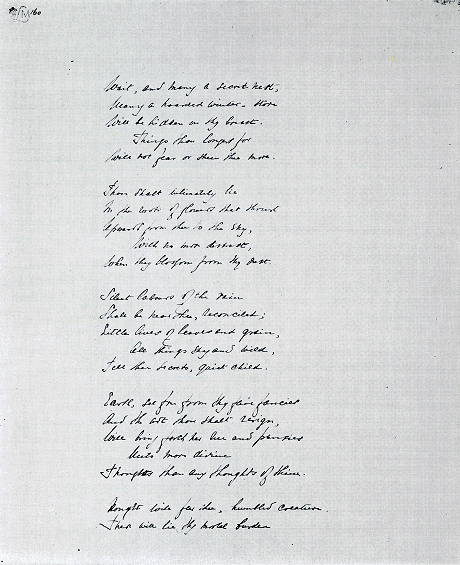 60
Wait, and many a secret nest,
Many a hoarded winter-store
Will be hidden on thy breast.
Things thou longest for
Will not fear or shun thee more.
Thou shalt intimately lie
In the roots of flowers that thrust
Upwards from thee to the sky,
With no more distrust,
When they blossom from thy dust.
Silent labours of the rain
Shall be near thee, reconciled;
Little lives of leaves and grain,
All things shy and wild,
Tell thee secrets, quiet child.
Earth, set free from thy fair fancies
And the art thou shalt resign,
Will bring forth her rue and pansies
Unto more divine
Thoughts than any thoughts of thine.
Nought will fear thee, humbled creature.
There will lie thy mortal burden